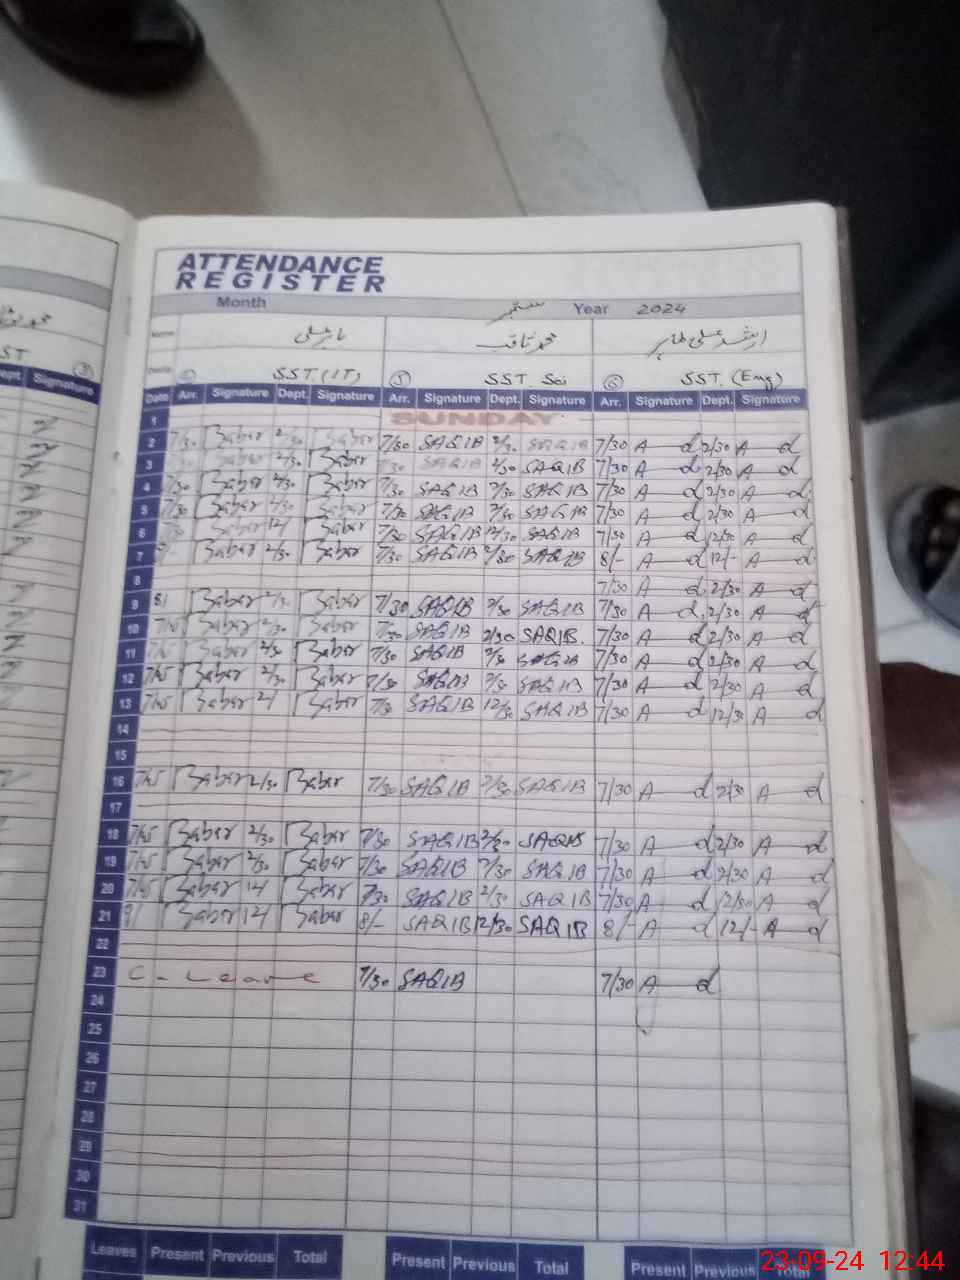 ATTENDANCE
REGISTER
Month ستمبر Year 2024
محمد ثاقب ارشد علی طاہر
ST SST.(IT) 5 SST. Sci 6 SST. (Eng)
Dept. Signature Date Arr. Signature Dept. Signature Arr. Signature Dept. Signature Arr. Signature Dept. Signature
1 SUNDAY
2 7/30 Baber 2/30 Baber 7/30 SAQIB 2/30 SAQIB 7/30 A d 2/30 A d
3 2/30 Baber 7/30 SAQIB 2/30 SAQIB 7/30 A d 2/30 A d
4 7/30 Baber 2/30 Baber 7/30 SAQIB 2/30 SAQIB 7/30 A d 2/30 A d
5 7/30 Baber 2/30 Baber 7/30 SAQIB 2/30 SAQIB 7/30 A d 2/30 A d
6 Baber 12/ Baber 7/30 SAQIB 12/30 SAQIB 7/30 A d 12/30 A d
7 Baber 2/30 Baber 7/30 SAQIB 2/30 SAQIB 8/- A d 12/- A d
8 7/30 A d 2/30 A d
9 8/ Baber 2/30 Baber 7/30 SAQIB 2/30 SAQIB 7/30 A d 2/30 A d
10 7/45 Baber 2/30 Baber 7/30 SAQIB 2/30 SAQIB 7/30 A d 2/30 A d
11 7/45 Baber 2/30 Baber 7/30 SAQIB 2/30 SAQIB 7/30 A d 2/30 A d
12 7/45 Baber 2/30 Baber 7/30 SAQIB 2/30 SAQIB 7/30 A d 2/30 A d
13 7/45 Baber 2/ Baber 7/30 SAQIB 12/30 SAQIB 7/30 A d 12/30 A d
14
15
16 7/45 Baber 2/30 Baber 7/30 SAQIB 2/30 SAQIB 7/30 A d 2/30 A d
17
18 7/45 Baber 2/30 Baber 7/30 SAQIB 2/30 SAQIB 7/30 A d 2/30 A d
19 7/45 Baber 2/30 Baber 7/30 SAQIB 2/30 SAQIB 7/30 A d 2/30 A d
20 7/45 Baber 12/ Baber 7/30 SAQIB 2/30 SAQIB 7/30 A d 12/30 A d
21 8/ Baber 12/ Baber 8/- SAQIB 12/30 SAQIB 8/- A d 12/- A d
22
23 C - Leave 7/30 SAQIB 7/30 A d
24
25
26
27
28
29
30
31
Leaves Present Previous Total Present Previous Total Present Previous Total
23-09-24 12:44